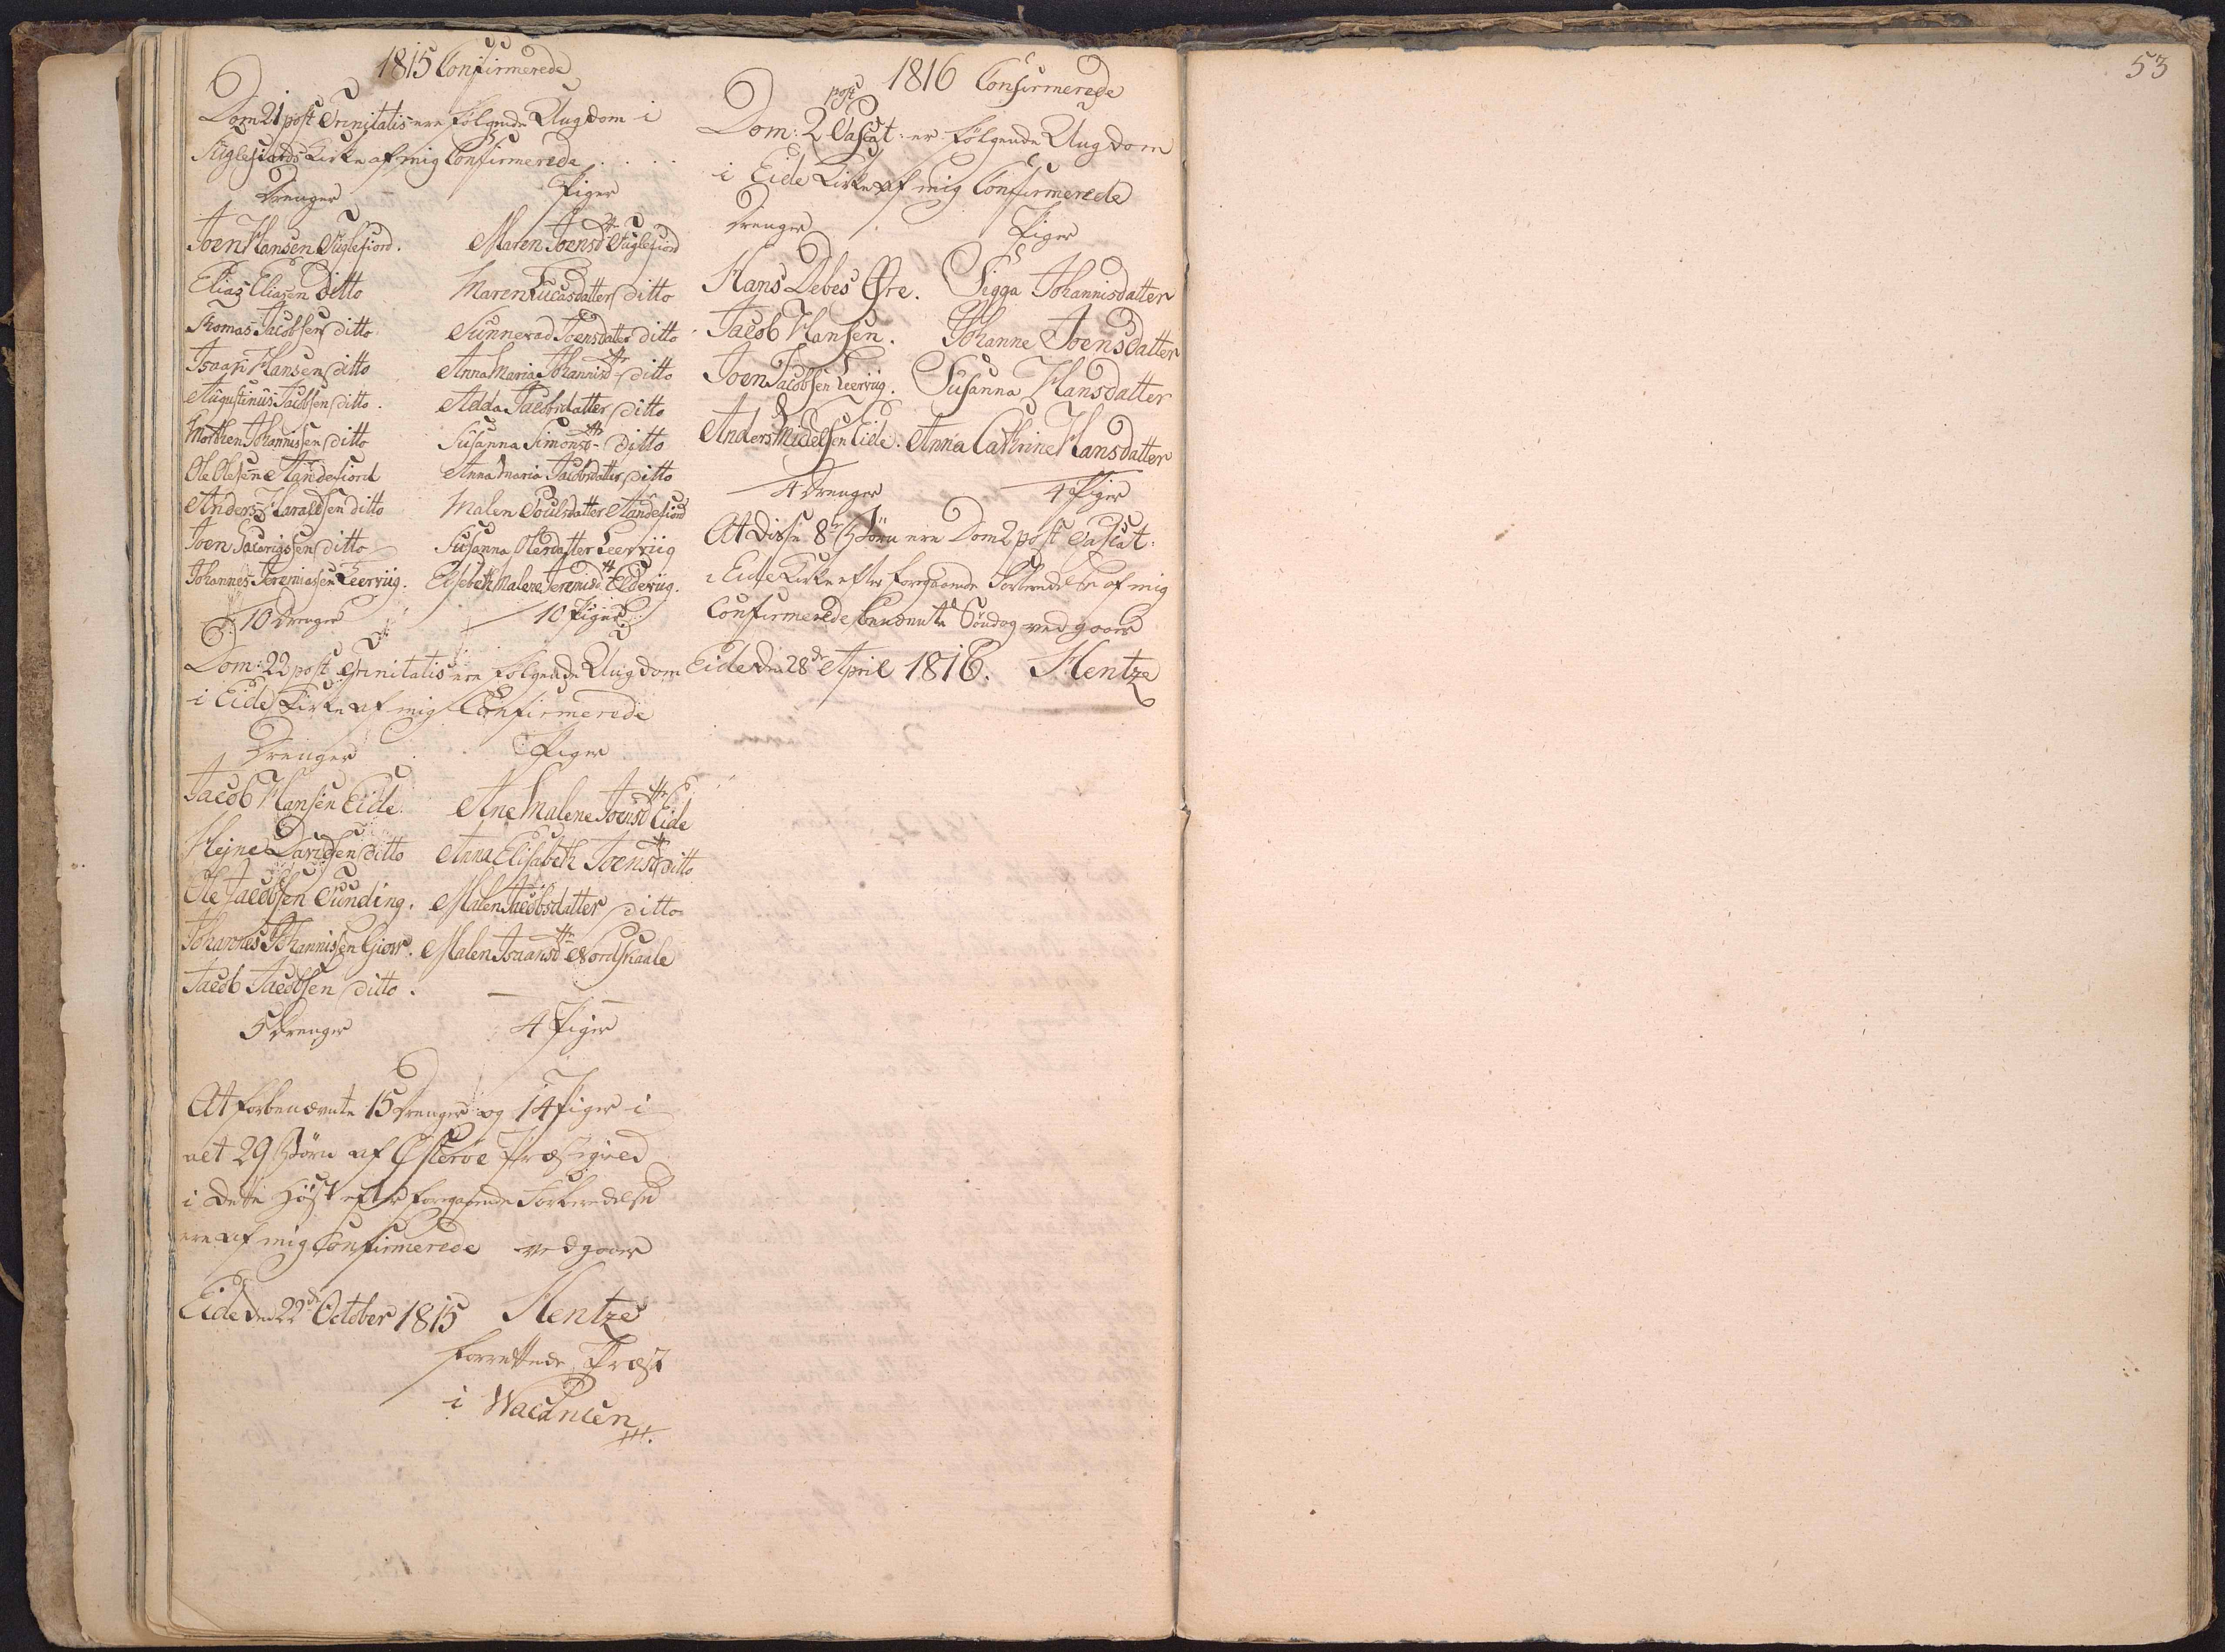 1815 Confirmerede
Dom 21 post Trinitatis ere følgende Ungdom i
Fuglefiords Kirke af mig Confirmerede
Drenger Piger
Joen Hansen Fuglefiord. Maren Joensdtr Fuglefiord
Elias Eliasen Ditto Maren Lucasdatter ditto
Thomas Jacobsen ditto Sunneva Joensdatter ditto
Isaak Hansen ditto Anna Maria Johannisdtr ditto
Augustinus Jacobsen ditto. Adda Jacobsdatter ditto
Morthen Johannesen ditto Susanna Simonsdtr ditto
Ole Olesen Andefiord Anna Maria Jacobsdatter ditto
Anders Haraldsen ditto Malen Poulsdatter Andefiord
Joen Zacarigsen ditto Susanna Olesdatter Leerviig
Johannes Jeremiasen Leerviig. Elsebeth Malene Jeremisdtr Eldeviig.
10 Drenger 10 Piger
Dom: 22 post Trinitatis ere følgende Ungdom
i Eide Kirke af mig Confirmerede
Drenger Piger
Jacob Hansen Eide. Ane Malene Joensdtr Eide
Hejne Davidsen ditto Anna Elisabeth Joensdtr ditto
Ole Jacobsen Funding. Malen Jacobsdatter ditto
Johannes Johannissen Giov. Malen Isaaksdtr Nordskaale
Jacob Jacobsen ditto.
5 Drenger 4 Piger
At forbenævnte 15 Drenger og 14 Piger i
alt 29 Børn af Østerøe Præstegield
i dette Høst efter foregaaende Forberedelse
ere af mig Confirmerede vedgaaer
Eide den 22de October 1815 Hentze
forrettede Præst
i Vacancen
1816 Confirmerede
post
Dom: 2 Pascat: er følgende Ungdom
i Eide Kirke af mig Confirmerede
Drenger Piger
Hans Debes Øre. Sigga Johannisdatter
Jacob Hansen. Johanne Joensdatter
Joen Jacobsen Leerviig. Susanna Hansdatter
Anders Michelsen Eide. Anna Cathrine Hansdatter
4 Drenger 4 Piger
At disse 8te Børn ere Dom 2 post Pascat:
i Eide Kirke efter foregaaende Forberedelse af mig
Confirmerede benævnte Søndag vedgaaer
Eide den 28de April 1816. Hentze
53